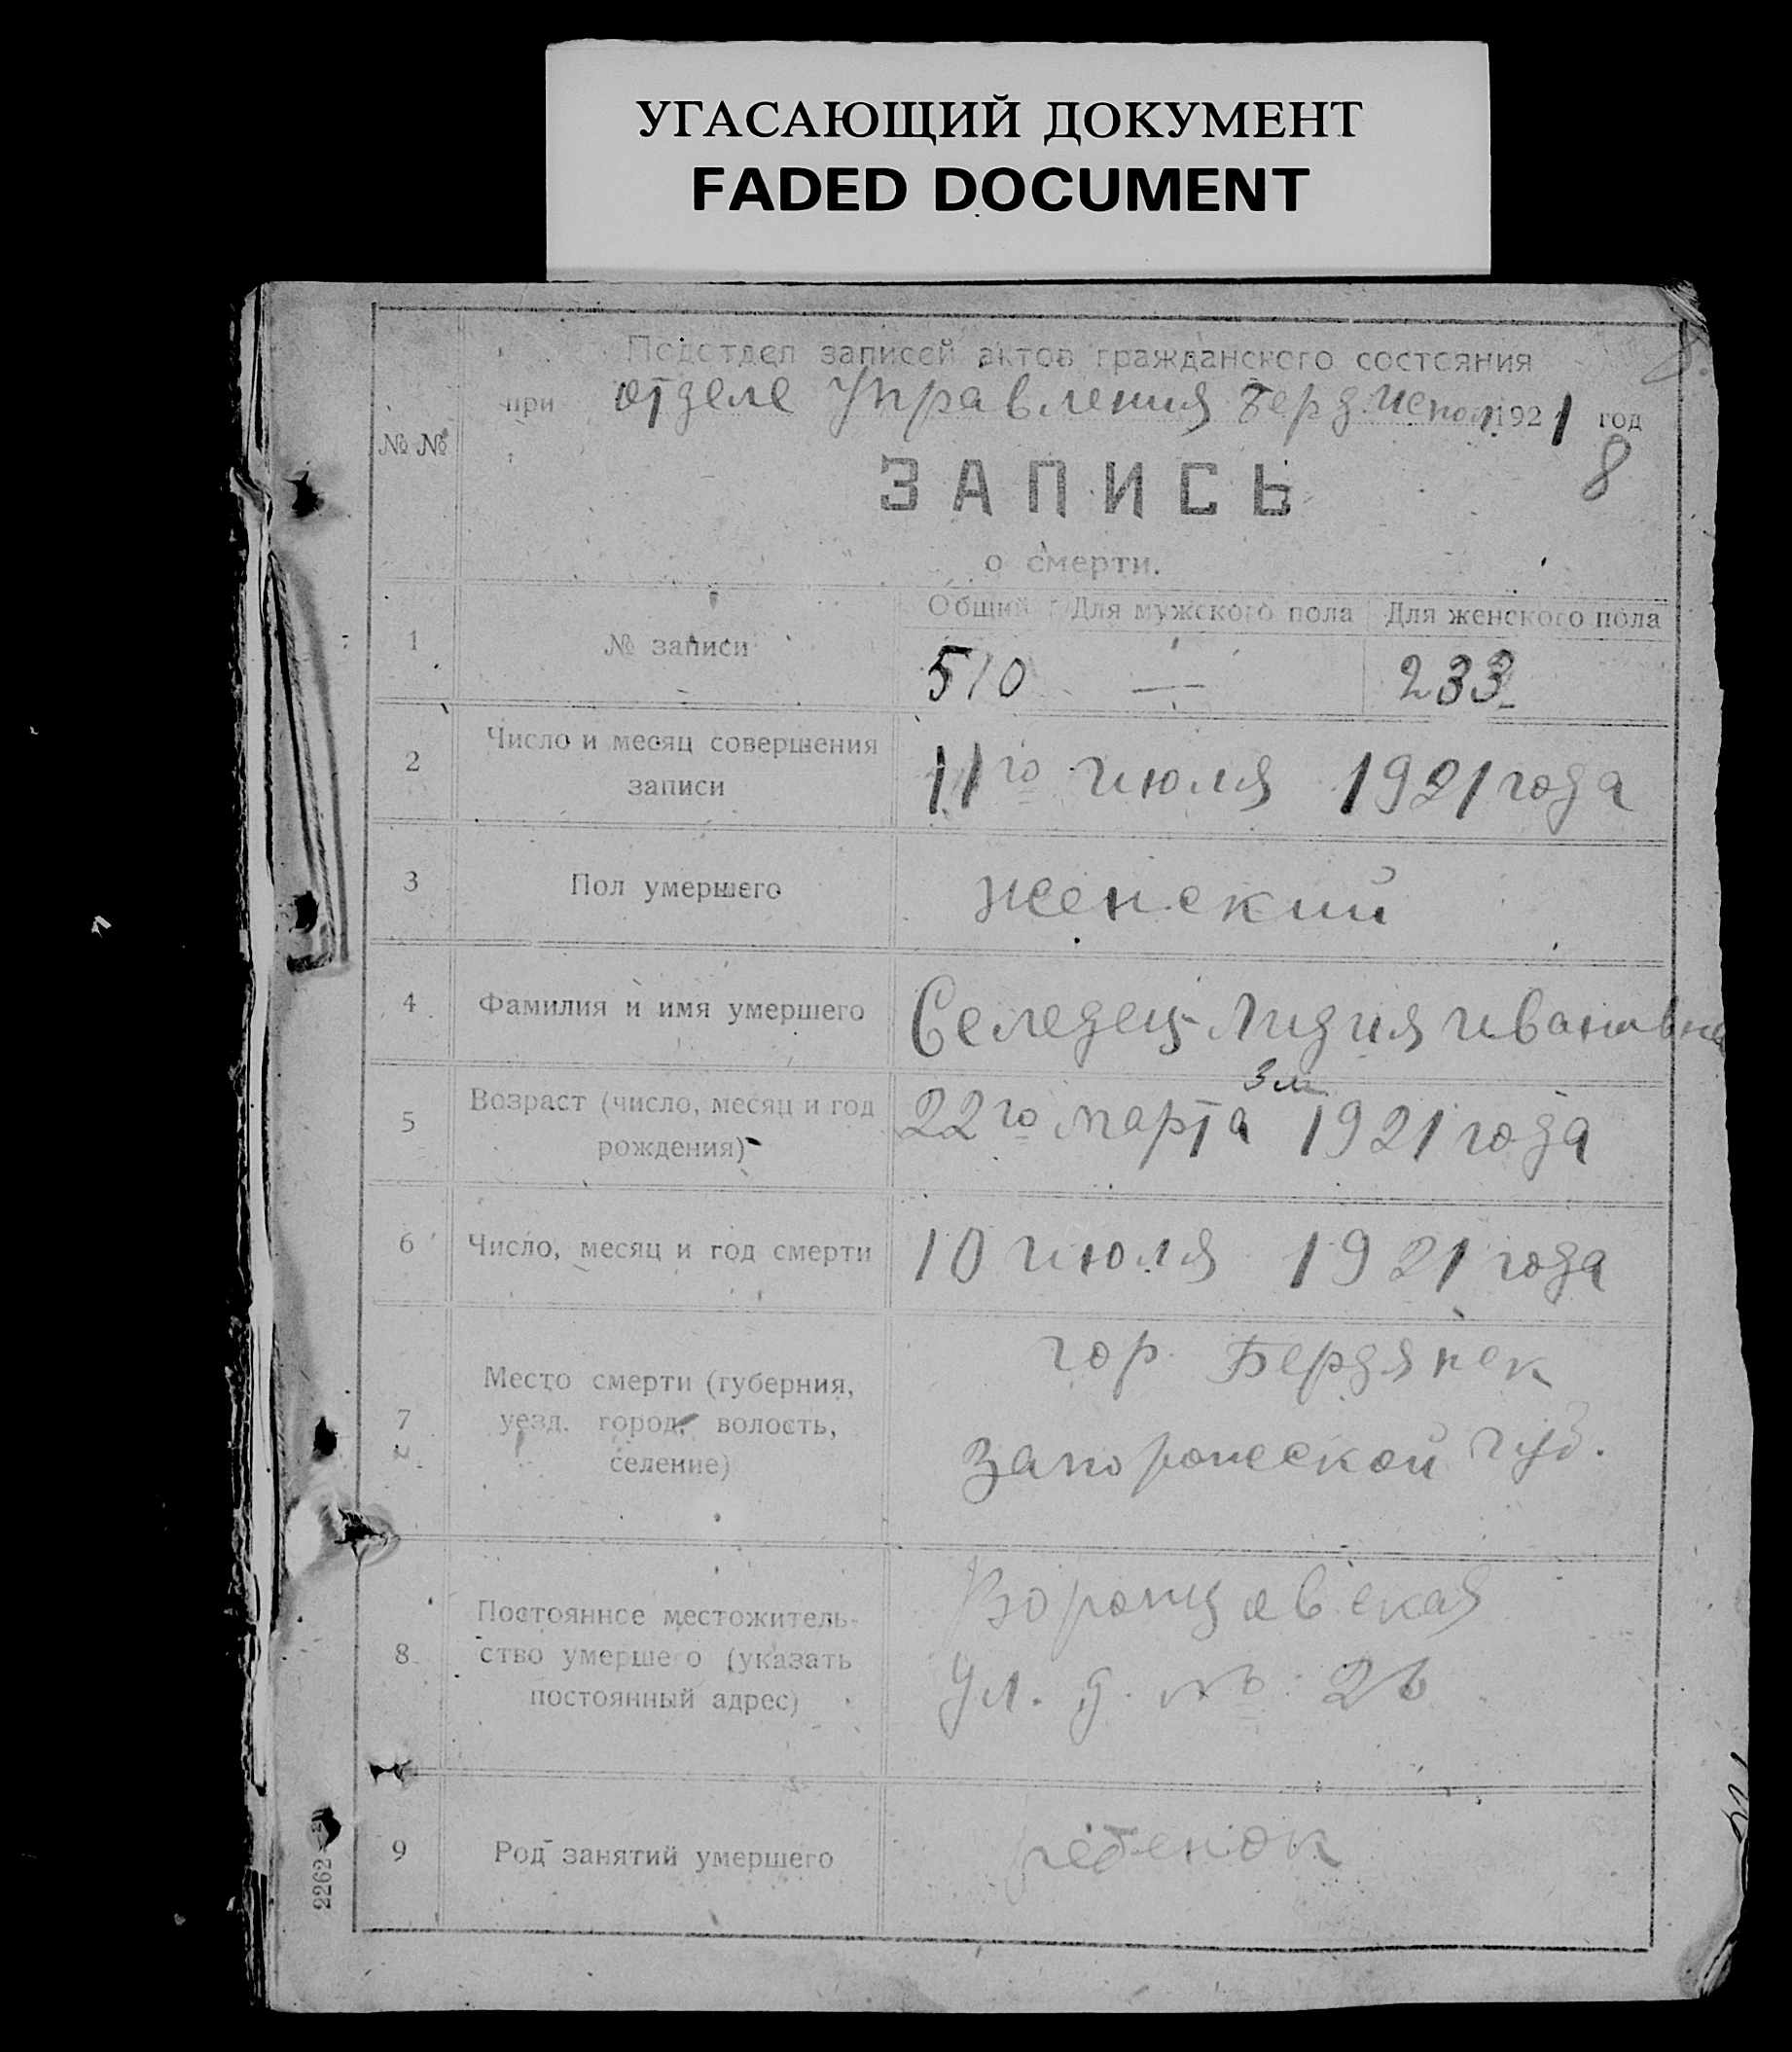 УГАСАЮЩИЙ ДОКУМЕНТ
FADED DOCUMENT
Подотдел записей актов гражданского состояния
при отделе Управления Берд. Испол. 1921 год
№ №
8
ЗАПИСЬ
о смерти.
Общий Для мужского пола Для женского пола
1 № записи 510 — 233
2 Число и месяц совершения записи 11го июля 1921 года
3 Пол умершего женский
4 Фамилия и имя умершего Селедец Лидия Ивановна
3 м
5 Возраст (число, месяц и год рождения) 22го марта 1921 года
6 Число, месяц и год смерти 10 июля 1921 года
7 Место смерти (губерния, гор. Бердянск
уезд. город, волость,
селение) Запорожской губ.
8 Постоянное местожитель- Воронцовская
ство умершего (указать ул. д. №
постоянный адрес)
9 Род занятий умершего ребенок
2262